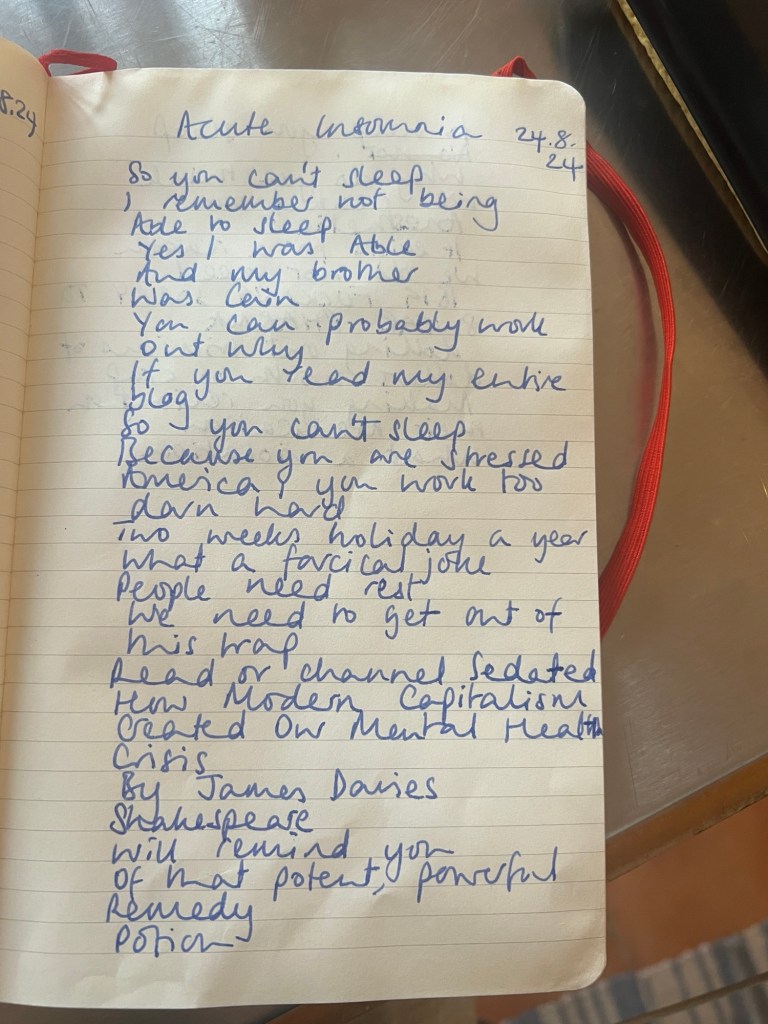 8.24
Acute Insomnia 24.8.
24
So you can't sleep
I remember not being
Able to sleep
Yes I was Able
And my brother
Was Cain
You can probably work
out why
If you read my entire
blog
So you can't sleep
Because you are stressed
America, you work too
darn hard
Two weeks holiday a year
what a farcical joke
People need rest
We need to get out of
this trap
Read or channel Sedated
How Modern Capitalism
Created Our Mental Health
Crisis
By James Davies
Shakespeare
will remind you
Of that potent, powerful
Remedy
Potion